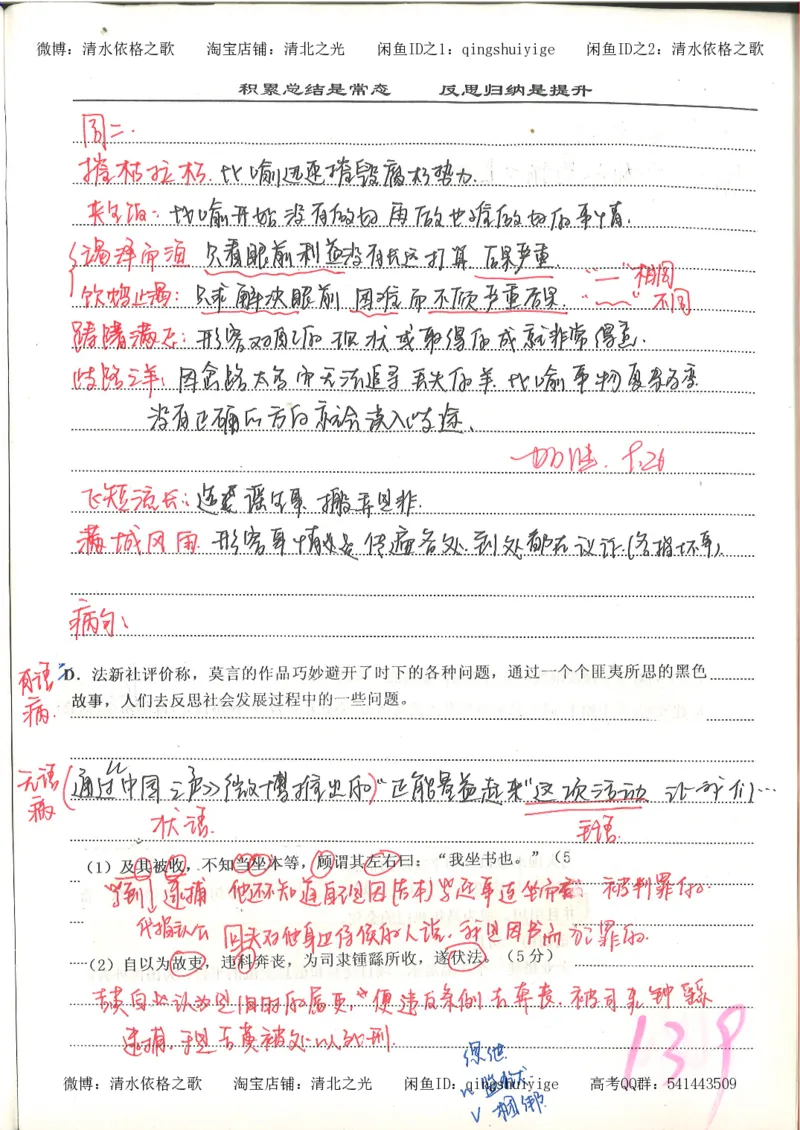 微博：清水依格之歌 淘宝店铺：清北之光 闲鱼ID之1：qingshuiyige 闲鱼ID之2：清水依格之歌
积累总结是常态 反思归纳是提升
周二.
摧枯拉朽. 比喻迅速摧毁腐朽势力.
夹生饭：比喻开始没有做好再做也难做好的事情.
竭泽而渔 只看眼前利益没有长远打算 后果严重.
"—"相同
饮鸩止渴：只求解决眼前困难而不顾严重后果. "﹏" 不同
踌躇满志：形容对自己的现状或取得的成就非常得意.
歧路亡羊：因岔路太多而无法追寻丢失的羊. 比喻事物复杂多变
没有正确的方向就会误入歧途.
9.26
飞短流长：造谣生事 搬弄是非.
满城风雨. 形容事情传遍各处.到处都在议论.(多指坏事)
病句：
有语病
D．法新社评价称，莫言的作品巧妙避开了时下的各种问题，通过一个个匪夷所思的黑色
故事，人们去反思社会发展过程中的一些问题。
无语病
(通过中国之声》微博推出的)"正能量益起来"这项活动 让我们…
状语. 主语.
（1）及其被收，不知当坐本等，顾谓其左右曰："我坐书也。"（5
"到" 逮捕 他还不知道自己是因 被判罪的.
代指 回头对他身边侍候的人说，我是因书而犯罪的.
（2）自以为故吏，违科奔丧，为司隶锺繇所收，遂伏法。（5 分）
吉黄自以认为是旧时的属吏，便违反条例去奔丧，被司隶钟繇
逮捕，于是吉黄被处以死刑.
139
微博：清水依格之歌 淘宝店铺：清北之光 闲鱼ID：qingshuiyige 高考QQ群：541443509
缧绁
n 监狱
v 捆绑